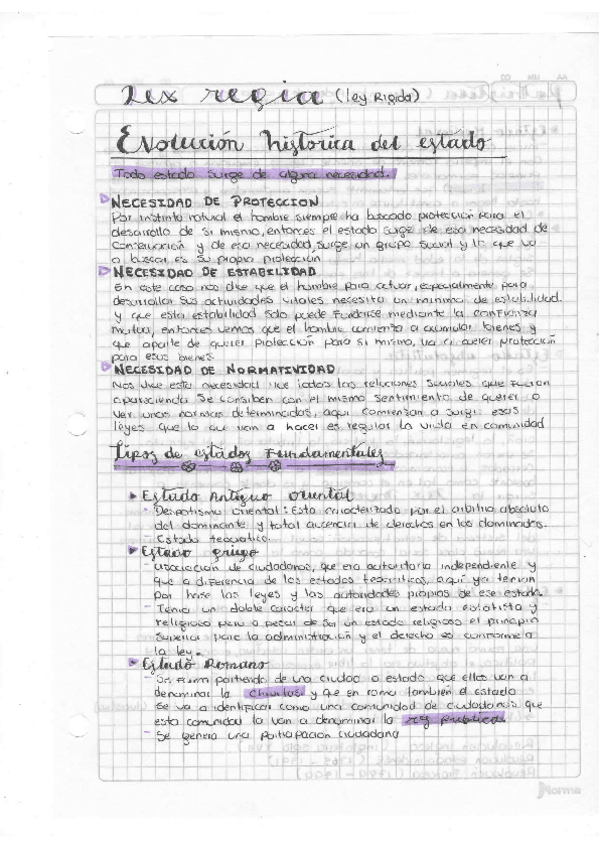 Lex regia (ley Rigida)
Evolución historica del estado
Todo estado surge de alguna necesidad.
NECESIDAD DE PROTECCION
Por instinto natural el hombre siempre ha buscado protección para el
desarrollo de si mismo, entonces el estado surge de esa necesidad de
conservación y de esa necesidad, surge un grupo social y lo que va
a buscar es su propia protección
NECESIDAD DE ESTABILIDAD
En este caso nos dice que el hombre para actuar, especialmente para
desarrollar sus actividades vitales necesita un minimo de estabilidad
y que esta estabilidad solo puede fundarse mediante la confianza
mutua, entonces vemos que el hombre comienza a acumular bienes y
que aparte de querer protección para si mismo, va a querer protección
para esos bienes
NECESIDAD DE NORMATIVIDAD
Nos dice esta necesidad que todas las relaciones sociales que fueron
apareciendo se conciben con el mismo sentimiento de querer o
ver unas normas determinadas, aqui comienzan a surgir esas
leyes que lo que van a hacer es regular la vida en comunidad
Tipos de estados Fundamentales
Estado Antiguo Oriental
- Despotismo Oriental: Esta caracterizado por el arbitrio absoluto
del dominante y total ausencia de derechos en los dominados.
- Estado teocratico.
Estado griego
- Asociacion de ciudadanos, que era autoritaria independiente y
que a diferencia de los estados teocraticos, aquí ya tenian
por base las leyes y las autoridades propias de ese estado.
- Tenia un doble caracter que era un estado estatista y
religioso pero a pesar de ser un estado religioso el principio
superior para la administración y el derecho es conforme a
la ley.
Estado Romano
- Se form partiendo de una ciudad o estado que ellos van a
denominar la y que en roma tambien el estado
se va a identificar como una comunidad de ciudadanos que
esta comunidad la van a denominar la publica
- Se genera una participación ciudadana
Norma